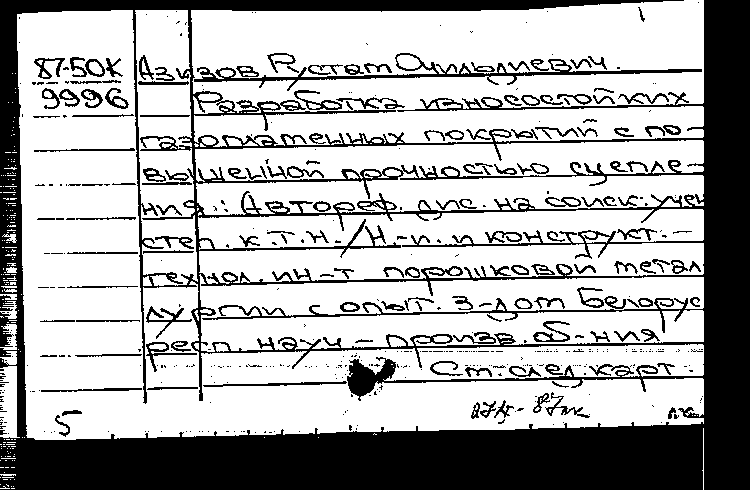 87-50К Азизов, Рустам Очильдиевич.
9996 Разработка износостойких
газопламенных покрытий с по-
вышенной прочностью сцепле-
ния.: Автореф. дис. на соиск. учен
степ. к.т.н. / Н.-и. и конструкт.-
технол. ин-т порошковой метал-
лургии с опыт. з-дом Белорус
респ. науч-произв. об-ния
См. след. карт.
5